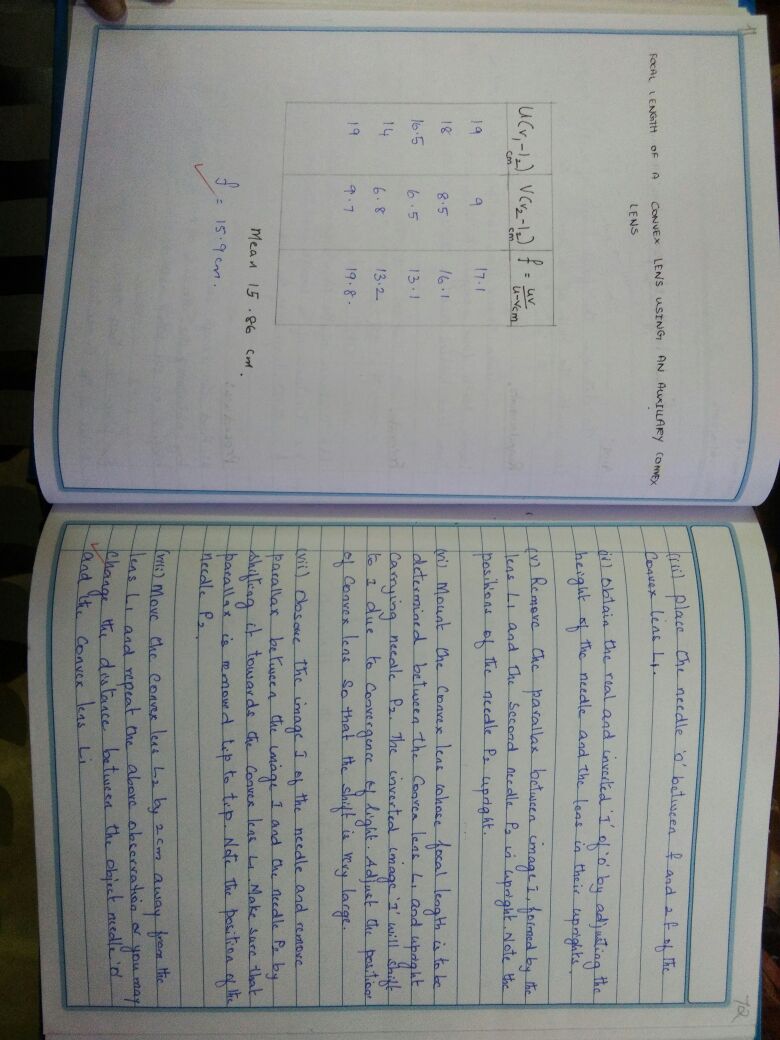 71
FOCAL LENGTH OF A CONVEX LENS USING AN AUXILLARY CONVEX
LENS
U(v₁-l₂) cm V(v₂-l₂) cm f = uv/u-v cm
19 9 17.1
18 8.5 16.1
16.5 6.5 13.1
14 6.8 13.2
19 9.7 19.8.
Mean 15.86 cm.
f = 15.9 cm.
72
(iii) place the needle 'o' between f and 2f of the
convex lens L₁.
(iv) Obtain the real and inverted 'I' of 'o' by adjusting the
height of the needle and the lens in their uprights.
(v) Remove the parallax between image I, formed by the
lens L₁ and the second needle P₂ in upright. Note the
positions of the needle P₂ upright.
(vi) Mount the convex lens whose focal length is to be
determined between the convex lens L₁ and upright
carrying needle P₂. The inverted image 'I' will shift
to I due to convergence of light. Adjust the position
of convex lens so that the shift is very large.
(vii) Observe the image I of the needle and remove
parallax between the image I and the needle P₂ by
shifting it towards the convex lens L₁. Make sure that
parallax is removed tip to tip. Note the position of the
needle P₂.
(viii) Move the convex lens L₂ by 2 cm away from the
lens L₁ and repeat the above observation or you may
change the distance between the object needle 'o'
and the convex lens L₁